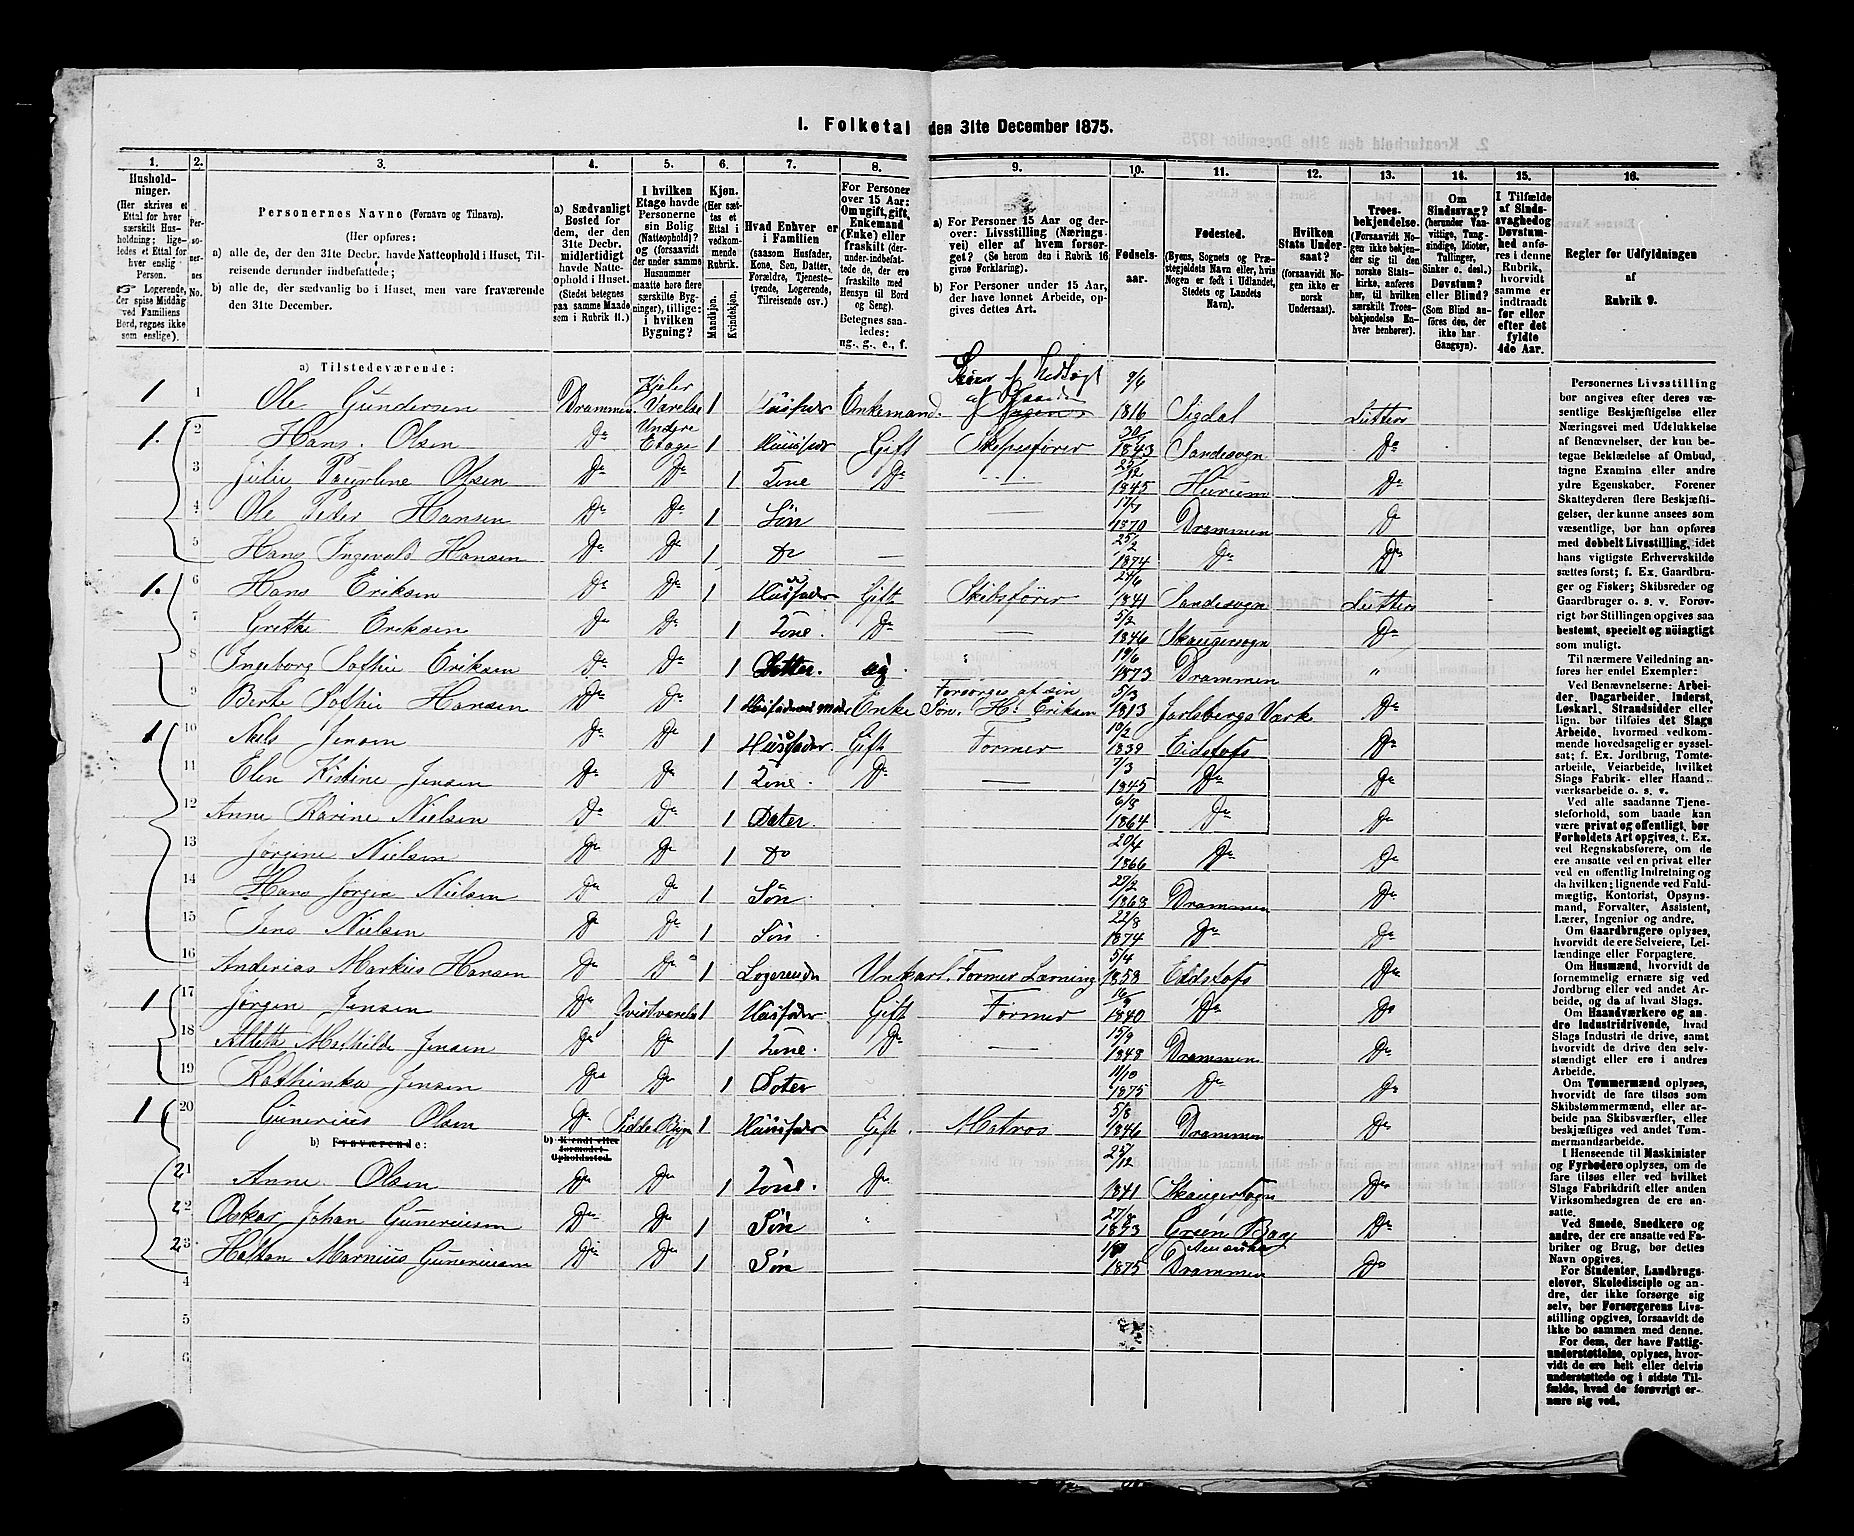 1. Folketal den 31te December 1875.
1. 2. 3. 4. 5. 6. 7. 8. 9. 10. 11. 12. 13. 14. 15. 16.
Husholdninger. (Her skrives et Ettal for hver særskilt Husholdning; ligeledes et Ettal for hver enslig Person. ☞ Logerende, der spise Middag ved Familiens Bord, regnes ikke som enslige).
Personernes No.
Personernes Navne (Fornavn og Tilnavn).
(Her opføres:
a) alle de, der den 31te Decbr. havde Natteophold i Huset, Tilreisende derunder indbefattede;
b) alle de, der sædvanlig bo i Huset, men vare fraværende den 31te December.
a) Sædvanligt Bosted for dem, der den 31te Decbr. midlertidigt havde Natteophold i Huset. (Stedet betegnes paa samme Maade som i Rubrik 11.)
I hvilken Etage havde Personerne sin Bolig (Natteophold)? og (forsaavidt der under samme Husnummer maatte høre flere særskilte Bygninger), tillige: i hvilken Bygning?
Kjøn. (Her sættes et Ettal i vedkommende Rubrik. Mandkjøn. Kvindekjøn.
Hvad Enhver er i Familien (saasom Husfader, Kone, Søn, Datter, Forældre, Tjenestetyende, Logerende, Tilreisende osv.)
For Personer over 15 Aar: Om ugift, gift, Enkemand (Enke) eller fraskilt (derunder-indbefattede de, der ere fraskilte med Hensyn til Bord og Seng). Betegnes saaledes: ug., g., e., f.
a) For Personer 15 Aar og derover: Livsstilling (Næringsvei) eller af hvem forsørget? (Se herom den i Rubrik 16 givne Forklaring).
b) For Personer under 15 Aar, der have lønnet Arbeide, opgives dettes Art.
Fødselsaar.
Fødested. (Byens, Sognets og Præstegjeldets Navn eller, hvis Nogen er født i Udlandet, Stedets og Landets Navn).
Hvilken Stats Undersaat? (forsaavidt Nogen ikke er norsk Undersaat).
Troesbekjendelse. (Forsaavidt Nogen ikke bekjender sig til den norske Statskirke, anføres her, til hvilken særskilt Troesbekjendelse Enhver henhører).
Om Sindssvag? (herunder Vanvittige, Tungsindige, Idioter, Tullinger, Sinker o. desl.) Døvstum? eller Blind? (Som Blind anføres den, der ikke har Gangsyn).
I Tilfælde af Sindssvaghed og Døvstumhed anføres i denne Rubrik, hvorvidt samme er indtraadt før eller efter det fyldte 4de Aar.
Regler for Udfyldningen af Rubrik 9.
a) Tilstedeværende:
1 1 Ole Gundersen Drammen. Kjeler Værelse 1 Husfader Enkemand. 9/6 1816 Sigdal Luttersk
1. 2 Hans. Olsen Do Undere Etage 1 Huusfader Gift Skipsfører 30/ 1843 Sandesogn Do
3 Julie Paurline Olsen Do Do 1 Kone Do 25/12 1845 Hurum Do
4 Ole Peter Hansen Do Do 1 Søn — 17/7 1870 Drammen Do
5 Hans Ingevald Hansen Do Do 1 do — 25/2 1874 Do Do
1. 6 Hans Eriksen Do Do 1 Husfader Gift Skibsfører 24/6 1841 Sandesogn Luttersk
7 Grethe Eriksen Do Do 1 Kone. Do — 5/2 1846 Skougersogn Do
8 Ingeborg Sofhie Eriksen Do Do 1 Dotter. 19/6 1873 Drammen "
9 Berte Sofhie Hansen Do Do 1 Husfaderens moder Enke Forsørges af sin Søn. H. Eriksen 5/3 1813 Jarlsbergs Værk Do
1 10 Niels Jensen Do Do 1 Huusfader Gift Former 19/2 1839 Eidsfofs Do
11 Elen Kistine Jensen Do Do 1 Kone. Do — 7/3 1845 Do Do
12 Anne Karine Nielsen Do Do 1 Dater. 6/8 1864 Do Do
13 Jørgine Nielsen Do Do 1 do 20/4 1866 Do Do
14 Hans Jørgen Nielsen Do Do 1 Søn 27/2 1868 Drammen Do
15 Jens Nielsen Do Do 1 Søn 22/8 1874 Do Do
16 Anderias Markus Hansen Do Do 1 Logerende Unkarl. Former Lærning 5/4 1858 Eidsfofs Do
1 17 Jørgen Jensen Do Qvistværelse 1 Husfader Gift Former 16/9 1840 Do Do
18 Alette Mathilde Jensen Do Do 1 Kone. Do — 15/9 1848 Drammen Do
19 Kathinka Jensen Do Do 1 Doter 11/10 1875 Do Do
1 20 Gunerius Olsen Do Sidde Byn 1 Huusfader Gift. Matros 5/8 1846 Drammen Do
b) Fraværende: b) Kjendt eller formodet Opholdssted.
21 Anne. Olsen Do Do 1 Kone. Do — 25/12 1841 Skougersogn Do
22 Oskar Johan Gunereiusen Do Do 1 Søn " 27/8 1873 Green Bay Amerika Do
23 Halfan Marneius Gunereiusen Do Do 1 Søn 1875 Drammen Do
4
5
6
Personernes Livsstilling bør angives efter deres væsentlige Beskjæftigelse eller Næringsvei med Udelukkelse af Benævnelser, der kun betegne Beklædelse af Ombud, tagne Examina eller andre ydre Egenskaber. Forener Skatteyderen flere Beskjæftigelser, der kunne ansees som væsentlige, bør han opføres med dobbelt Livsstilling, idet hans vigtigste Erhvervskilde sættes først; f. Ex. Gaardbruger og Fisker; Skibsreder og Gaardbruger o. s. v. Forøvrigt bør Stillingen opgives saa bestemt, specielt og nöiagtigt som muligt.
Til nærmere Veiledning anføres her Exempler:
Ved Benævnelserne: Arbeider, Dagarbeider, Inderst, Løskarl, Strandsidder eller lign. bør tilføies det Slags Arbeide, hvormed vedkommende hovedsagelig er sysselsat; f. Ex. Jordbrug, Tomtearbeide, Veiarbeide, hvilket Slags Fabrik- eller Haandværksarbeide o. s. v.
Ved alle saadanne Tjenesteforhold, som baade kan være privat og offentligt, bør Forholdets Art opgives, t. Ex. ved Regnskabsførere, om de ere ansatte ved en privat eller ved en offentlig Indretning og da hvilken; lignende ved Fuldmægtig, Kontorist, Opsynsmand, Forvalter, Assistent, Lærer, Ingeniør og andre.
Om Gaardbrugere oplyses, hvorvidt de ere Selveiere, Leilændinge eller Forpagtere.
Om Husmænd, hvorvidt de fornemmelig ernære sig ved Jordbrug eller ved andet Arbeide, og da af hvad Slags.
Om Haandværkere og andre Industridrivende, hvad Slags Industri de drive, samt hvorvidt de drive den selvstændigt eller ere i andres Arbeide.
Om Tømmermænd oplyses, hvorvidt de fare tilsøs som Skibstømmermænd, eller arbeide paa Skibsværfter, eller beskjæftiges ved andet Tømmermandsarbeide.
I Henseende til Maskinister og Fyrbødere oplyses, om de fare tilsøs eller ved hvilket Slags Fabrikdrift eller anden Virksomhedsgren de ere ansatte.
Ved Smede, Snedkere og andre, der ere ansatte ved Fabriker og Brug, bør dettes Navn opgives.
For Studenter, Landbrugselever, Skoledisciple og andre, der ikke forsørge sig selv, bør Forsørgerens Livsstilling opgives, forsaavidt de ikke bo sammen med denne.
For dem, der have Fattigunderstøttelse, oplyses, hvorvidt de ere helt eller delvis understøttede og i sidste Tilfælde, hvad de forøvrigt ernære sig ved.